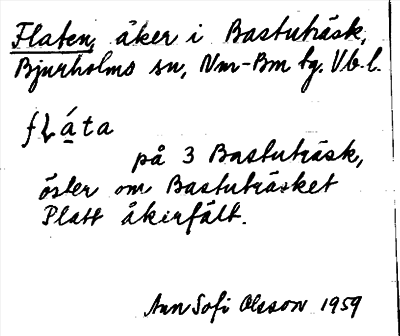 Flaten, åker i Bastuträsk,
Bjurholms sn, Nm-Bm tg. Vb.l.
flá̱ta
på 3 Bastuträsk,
öster om Bastuträsket
Platt åkerfält.
Ann Sofi Olsson 1959